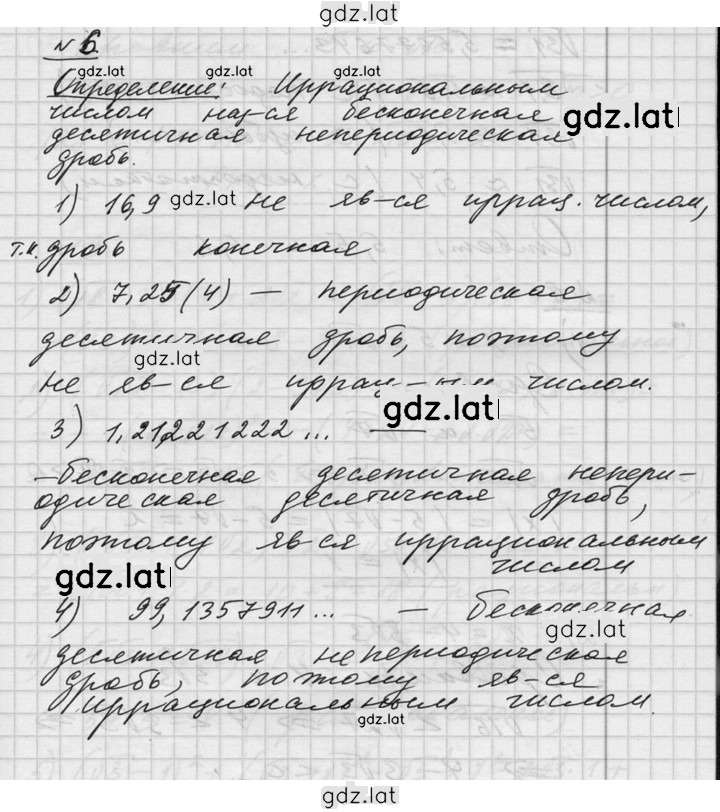 gdz.lat
№ 6
gdz.lat gdz.lat
Определение: Иррациональным
числом наз-ся бесконечная
gdz.lat
десятичная непериодическая
дробь.
1) 16,9 gdz.lat не яв-ся иррац. числом,
т.к. дробь конечная
2) 7,25(4) — периодическая
десятичная дробь, поэтому
gdz.lat
не яв-ся иррац-ным числом.
gdz.lat
3) 1,21221222... —
-бесконечная десятичная непери-
одическая десятичная дробь,
поэтому яв-ся иррациональным
числом
gdz.lat
4) 99,1357911... — бесконечная
gdz.lat
десятичная непериодическая
дробь, поэтому яв-ся
иррациональным числом.
gdz.lat
gdz.lat